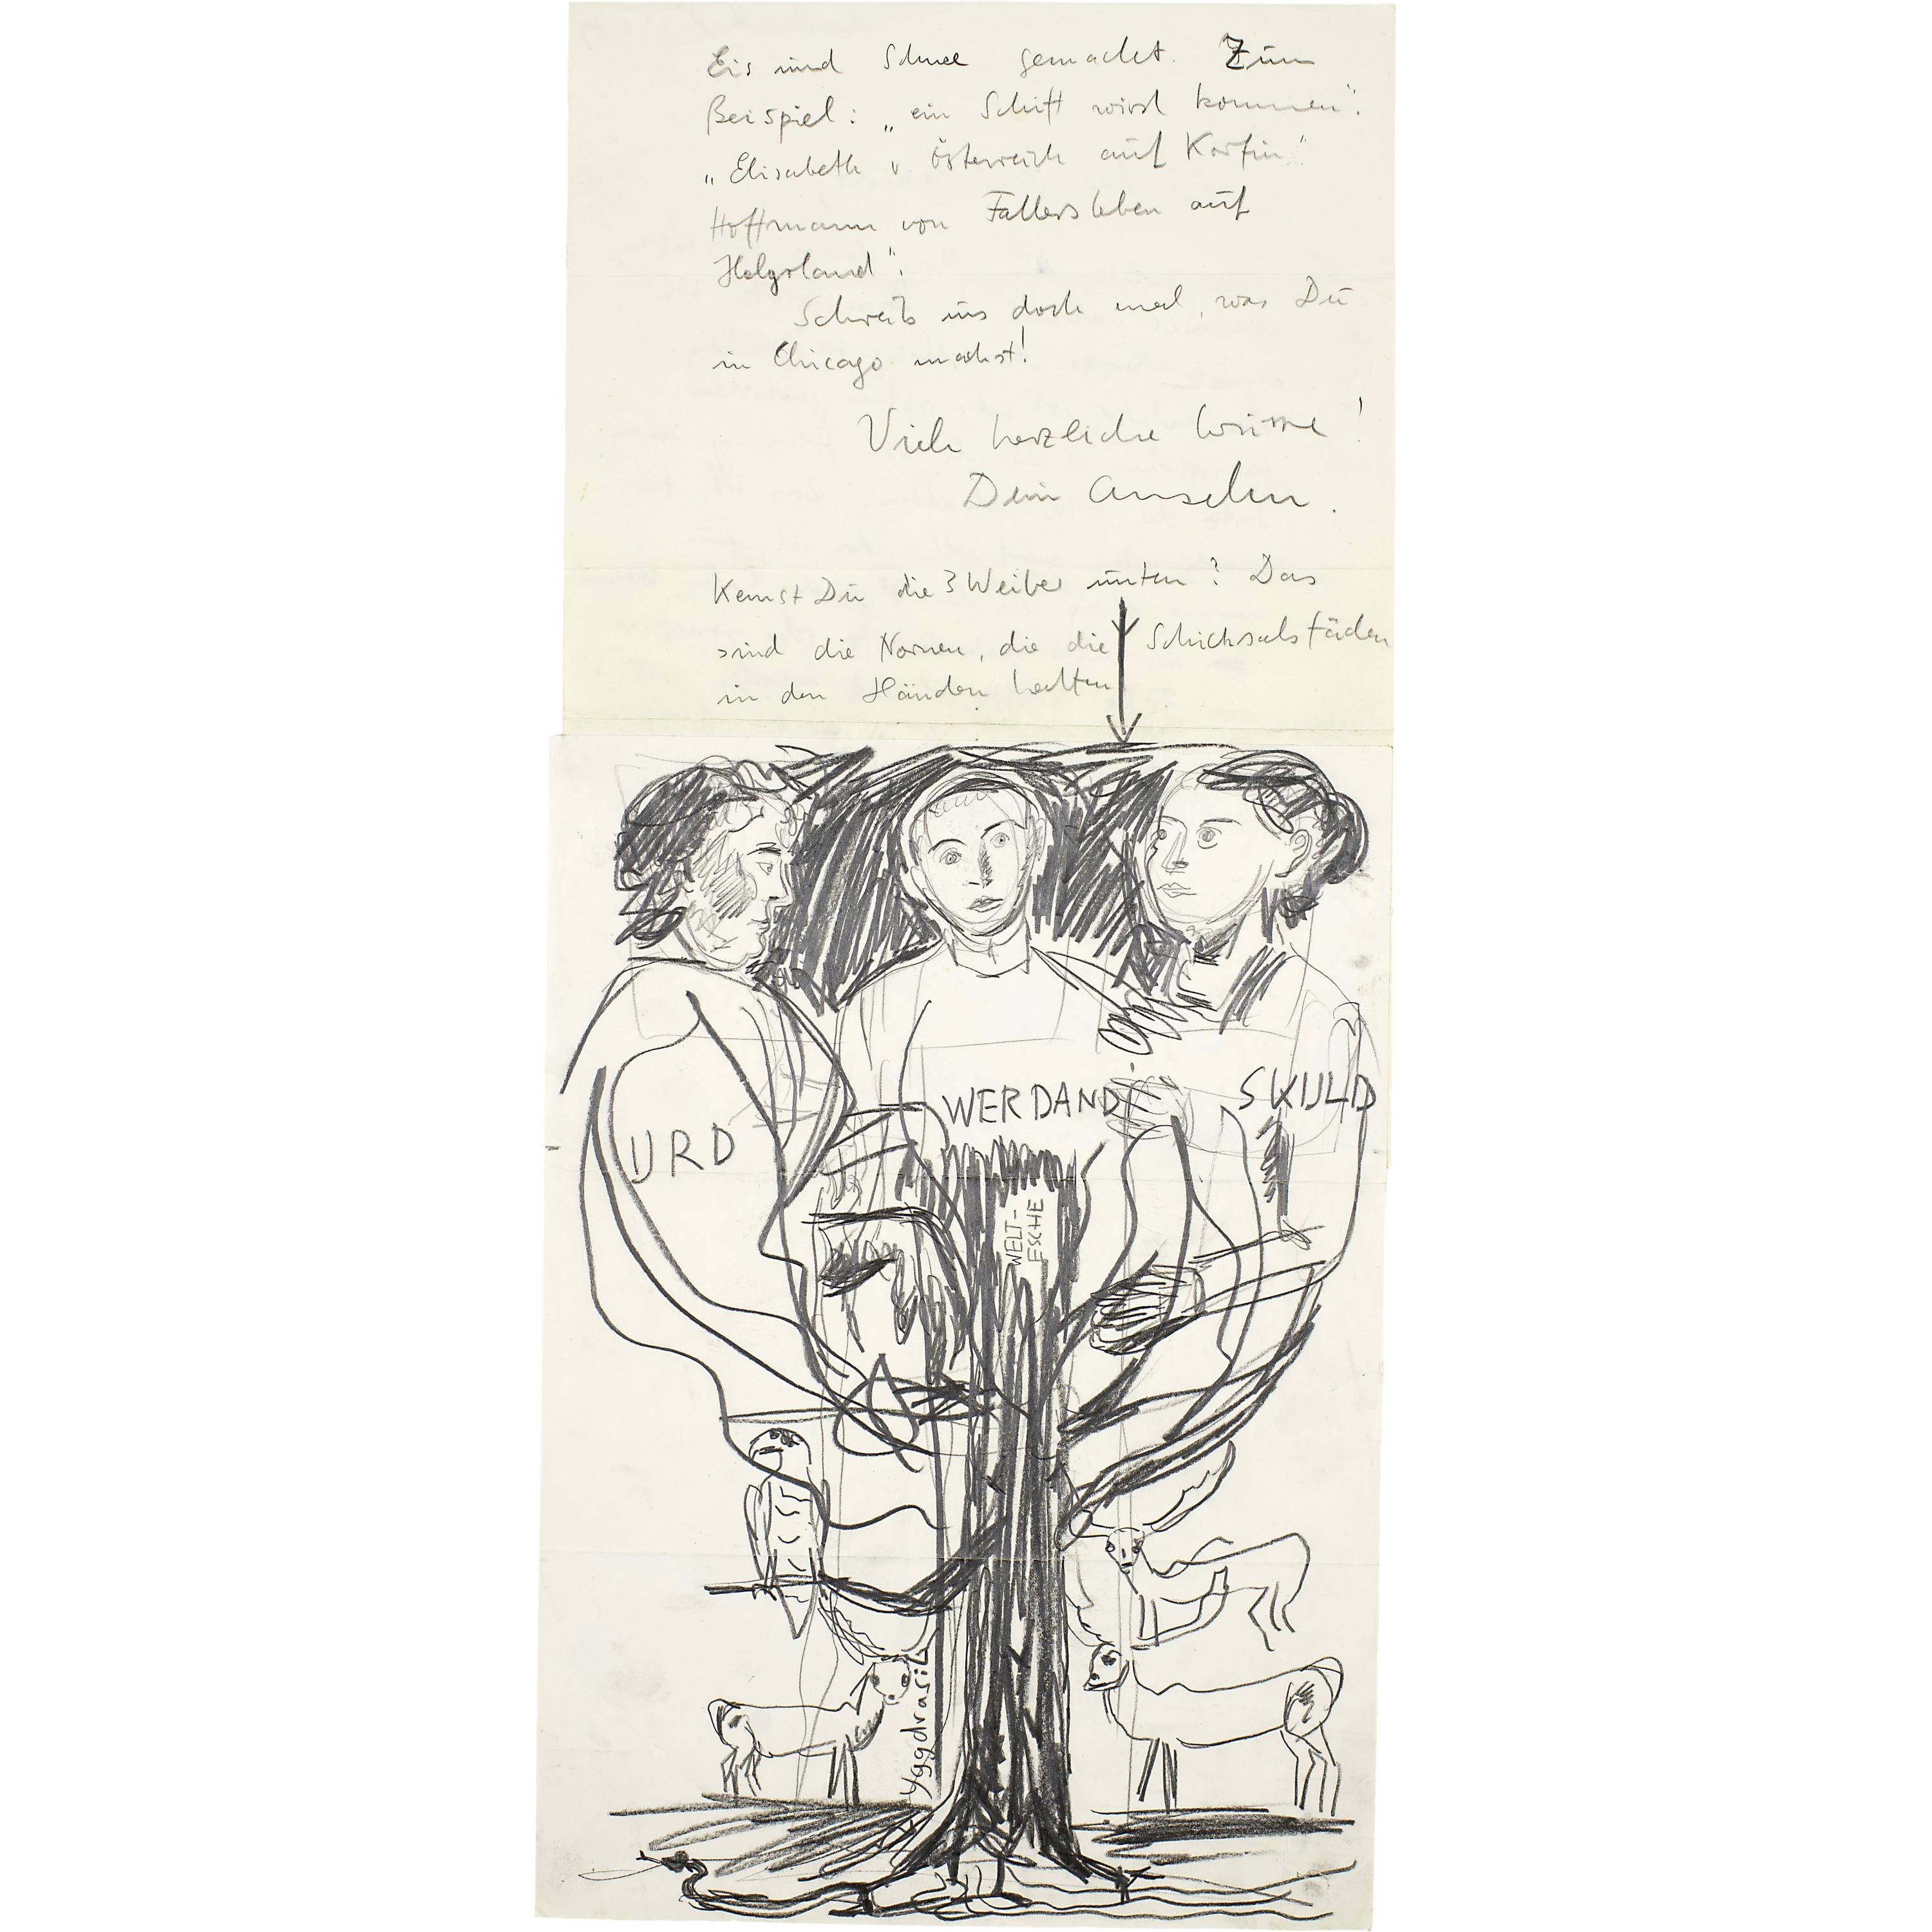 Eis und Schnee gemacht. Zum
Beispiel: „ein Schiff wird kommen".
„Elisabeth v. Österreich auf Korfu"
Hoffmann von Fallersleben auf
Helgoland".
Schreib uns doch mal, was Du
in Chicago machst!
Viele herzliche Grüsse!
Dein Anselm.
Kennst Du die 3 Weiber unten? Das
sind die Nornen, die die Schicksalsfäden
in den Händen halten
URD
WERDANDI
SKULD
WELT-
ESCHE
Yggdrasil